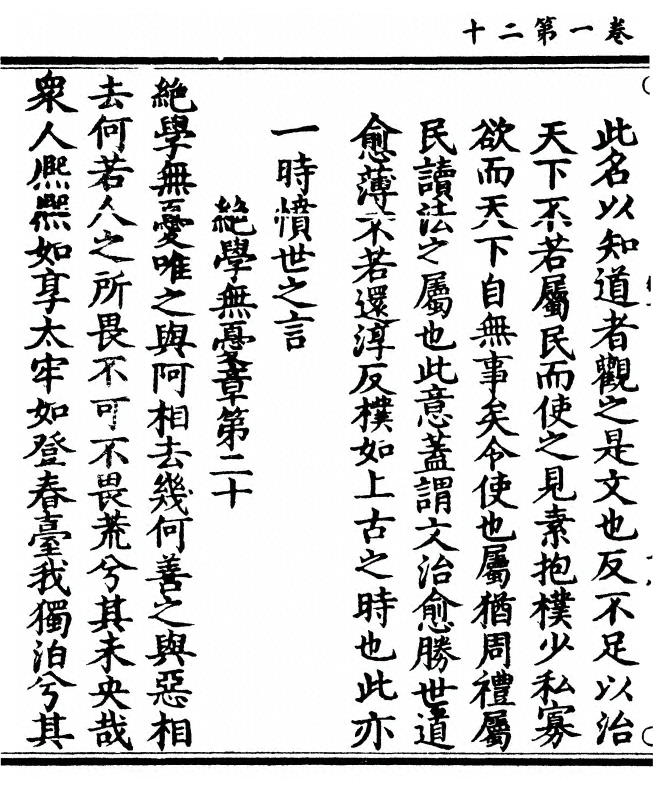 卷一第二十
此名以知道者觀之是文也反不足以治
天下不若屬民而使之見素抱樸少私寡
欲而天下自無事矣令使也屬猶周禮屬
民讀法之屬也此意蓋謂文治愈勝世道
愈薄不若還淳反樸如上古之時也此亦
一時憤世之言
絕學無憂章第二十
絕學無憂唯之與阿相去幾何善之與惡相
去何若人之所畏不可不畏荒兮其未央哉
衆人熙熙如享太牢如登春臺我獨泊兮其